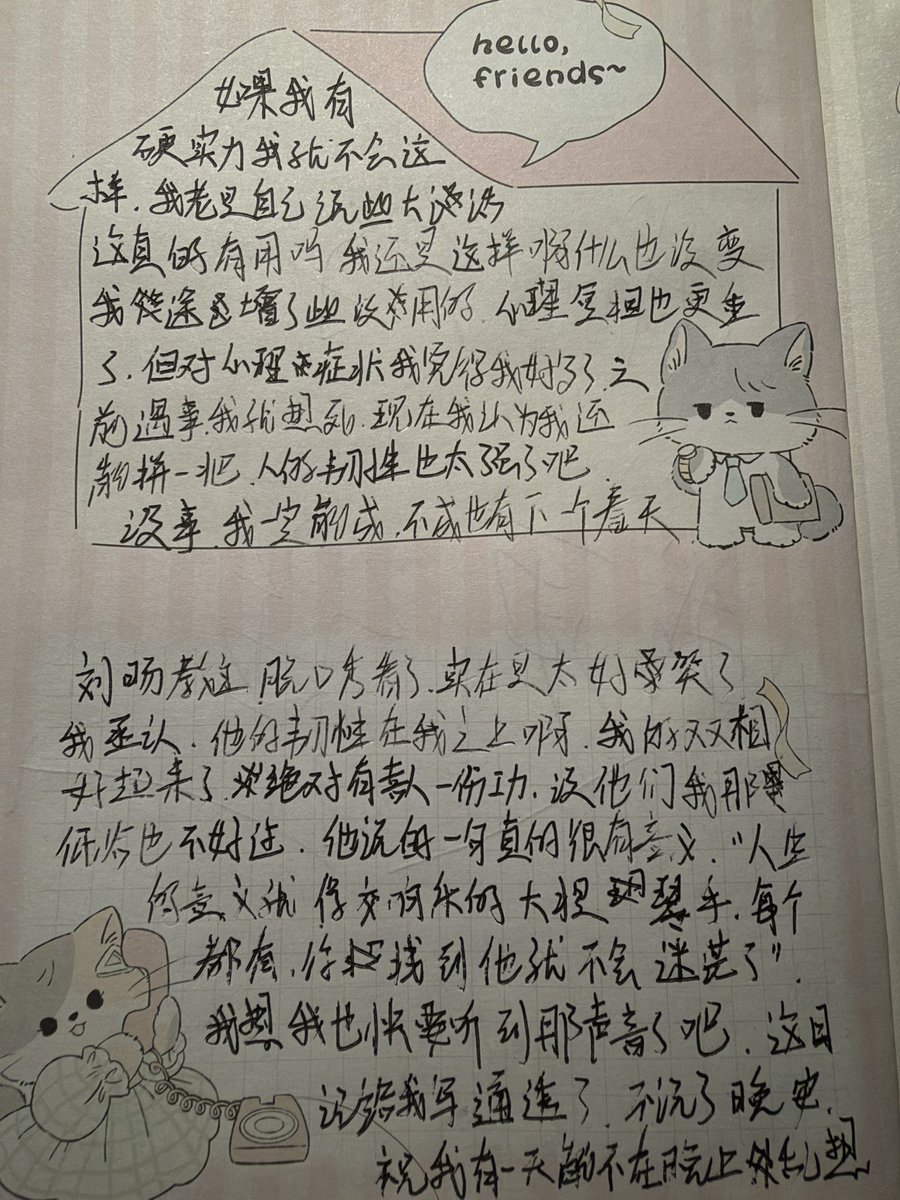 hello,
friends~
如果我有
硬实力我就不会这
样.我老是自己说些大道话
这真的有用吗 我还是这样啊什么也没变
我除途增了些没用的.心理负担也更重
了.但对心理症状我觉得我好多了之
前遇事.我就想死.现在我认为我还
能拼一把.人的韧性也太强了吧
没事.我一定能成.不成也有下一个春天
刘旸教主.脱口秀看了.实在是太好笑了
我承认.他的韧性在我之上啊.我的双相
好起来了.绝对有喜人一份功.没他们我那
低谷也不好过.他说的一句真的很有意义."人生
的意义就像交响乐的大提琴手.每个
都有.你找到他就不会迷茫了".
我想我也快要听到那声音了吧.这日
记给我写通透了.不说了晚安.
祝我有一天能不在晚上乱想.